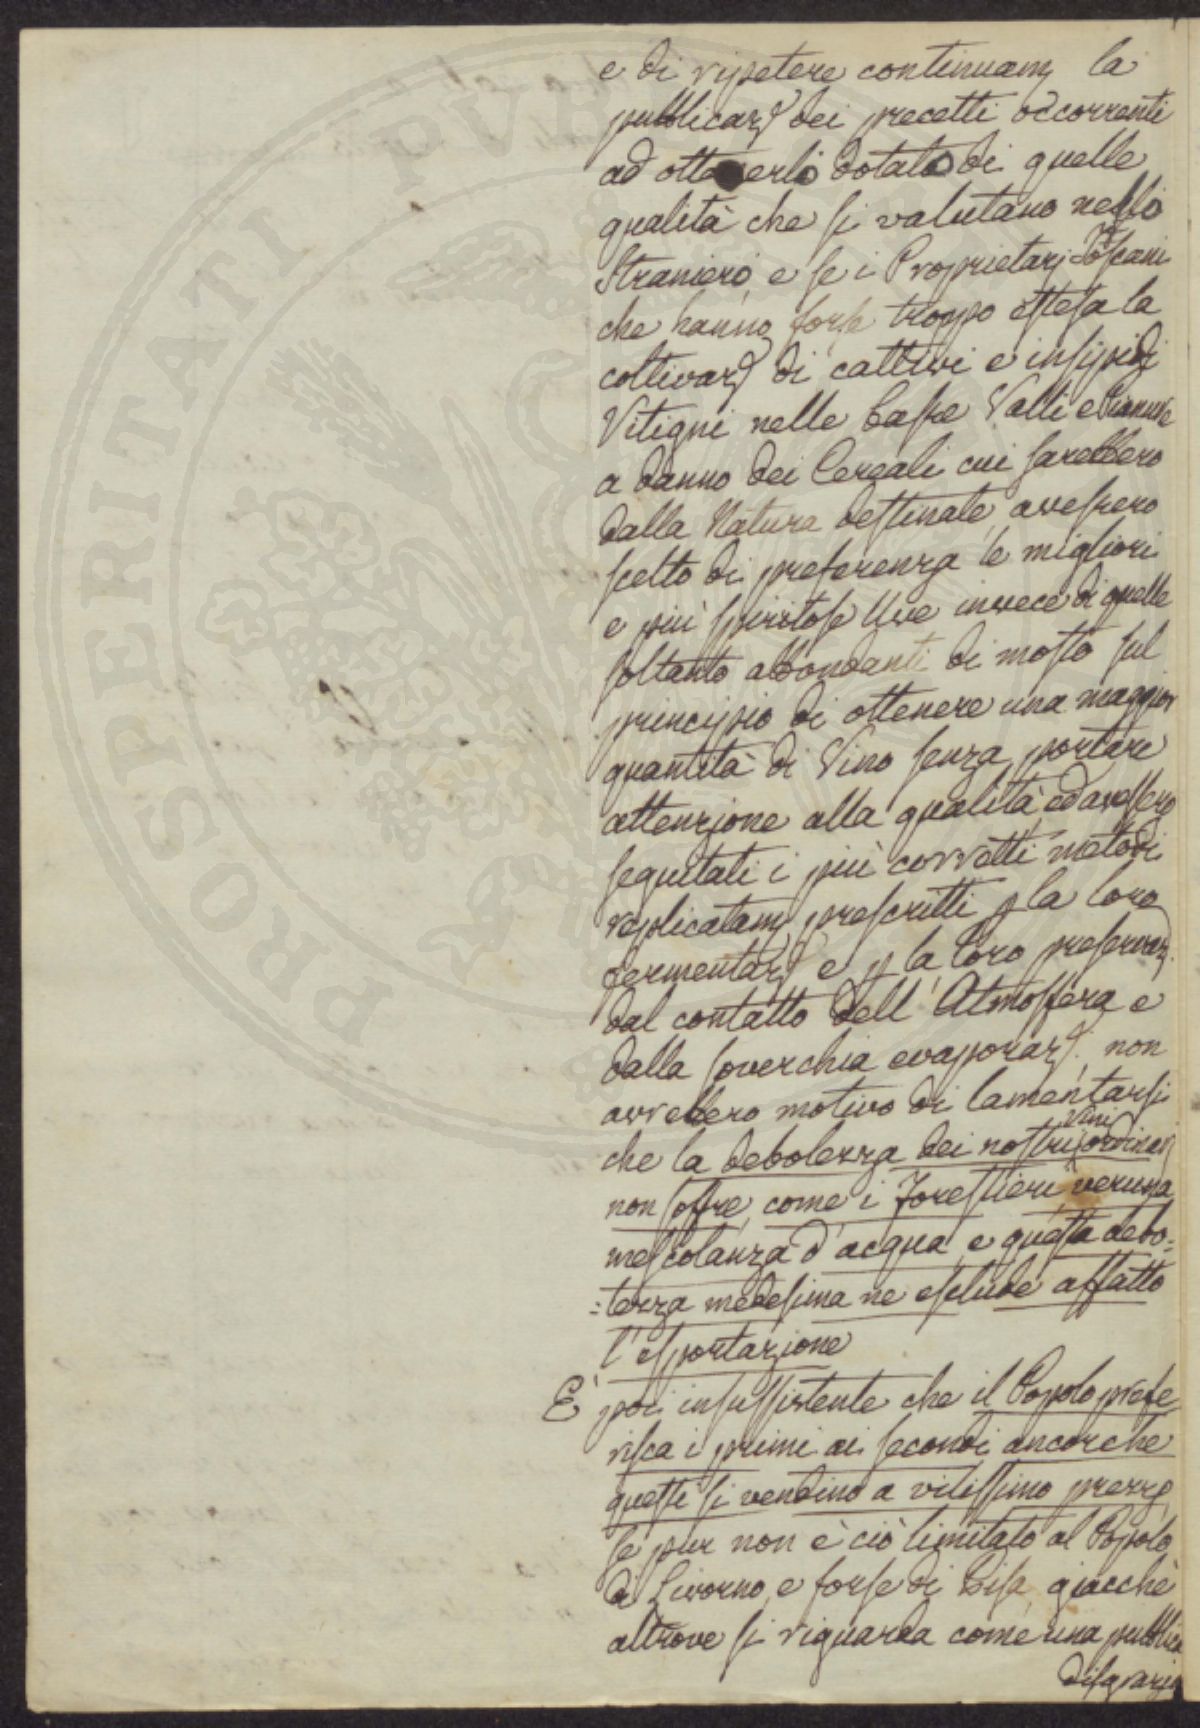 e di ripetere continuam. la
pubblicaz. dei precetti occorrenti
ad ottenerlo dotato di quelle
qualità che si valutano nello
Straniero, e se i Proprietarj Toscani
che hanno forse troppo estesa la
coltivaz. di cattivi e insipidi
Vitigni nelle basse Valli e Pianure
a danno dei Cereali cui sarebbero
dalla Natura destinate avessero
scelto di preferenza le migliori
e più spiritose Uve invece di quelle
soltanto abbondanti di mosto sul
principio di ottenere una maggior
quantità di Vino senza portare
attenzione alla qualità, ed avessero
seguitati i più corretti metodi
replicatam. prescritti p. la loro
fermentaz. e p. la loro preservaz.
dal contatto dell'Atmosfera e
dalla soverchia evaporaz. non
avrebbero motivo di lamentarsi
che la debolezza dei nostri Vini ordinarj
non soffre, come i Forestieri veruna
mescolanza d'acqua e questa debo=
=lezza medesima ne esclude affatto
l'esportazione
È poi insussistente che il Popolo prefe
risca i primi ai secondi ancorche
questi si vendino a vilissimo prezzo
se pur non è ciò limitato al Popolo
di Livorno, e forse di Pisa, giacchè
altrove si riguarda come una pubblica
disgrazia
PROSPERITATI PUBL